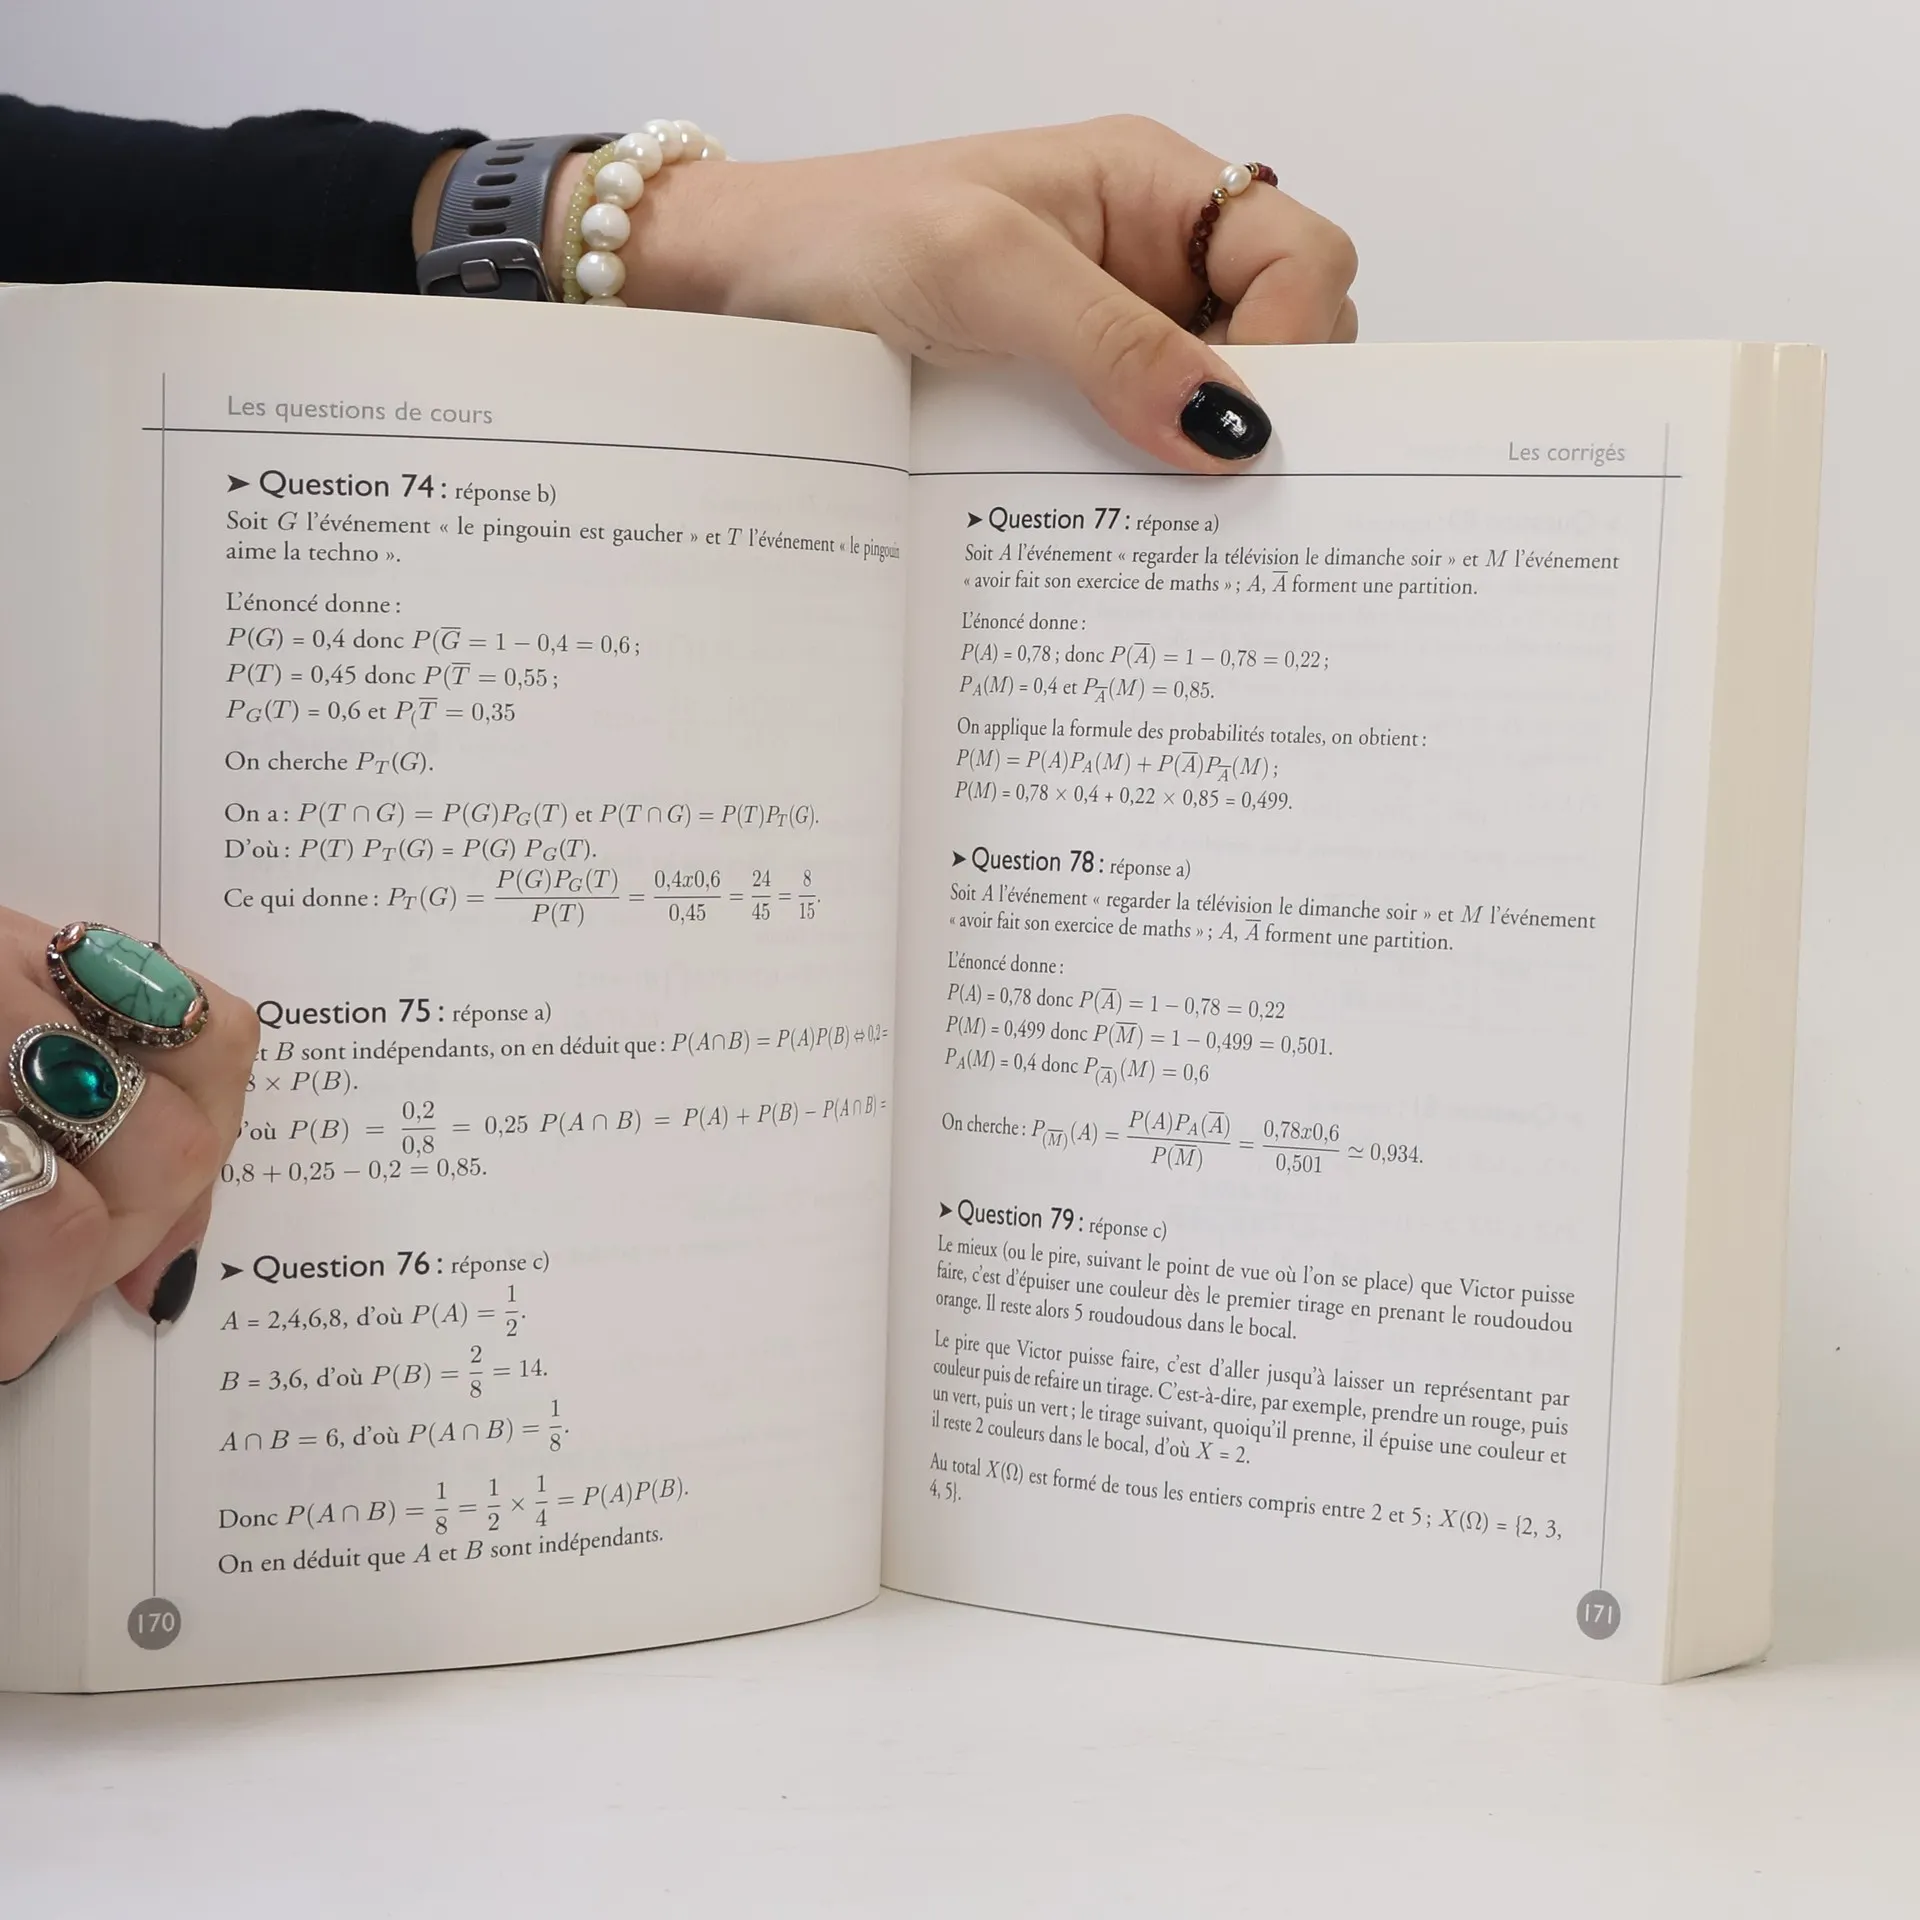 Les questions de cours
➤ Question 74 : réponse b)
Soit G l'événement « le pingouin est gaucher » et T l'événement « le pingouin
aime la techno ».
L'énoncé donne :
P(G) = 0,4 donc P(G̅ = 1 − 0,4 = 0,6 ;
P(T) = 0,45 donc P(T̅ = 0,55 ;
P_G(T) = 0,6 et P₍T̅ = 0,35
On cherche P_T(G).
On a : P(T ∩ G) = P(G)P_G(T) et P(T ∩ G) = P(T)P_T(G).
D'où : P(T) P_T(G) = P(G) P_G(T).
Ce qui donne : P_T(G) = P(G)P_G(T)/P(T) = 0,4x0,6/0,45 = 24/45 = 8/15.
Question 75 : réponse a)
et B sont indépendants, on en déduit que : P(A∩B) = P(A)P(B) ⇔ 0,2 =
8 × P(B).
'où P(B) = 0,2/0,8 = 0,25 P(A ∩ B) = P(A) + P(B) − P(A ∩ B) =
0,8 + 0,25 − 0,2 = 0,85.
➤ Question 76 : réponse c)
A = 2,4,6,8, d'où P(A) = 1/2.
B = 3,6, d'où P(B) = 2/8 = 14.
A ∩ B = 6, d'où P(A ∩ B) = 1/8.
Donc P(A ∩ B) = 1/8 = 1/2 × 1/4 = P(A)P(B).
On en déduit que A et B sont indépendants.
170
Les corrigés
➤ Question 77 : réponse a)
Soit A l'événement « regarder la télévision le dimanche soir » et M l'événement
« avoir fait son exercice de maths » ; A, A̅ forment une partition.
L'énoncé donne :
P(A) = 0,78 ; donc P(A̅) = 1 − 0,78 = 0,22 ;
P_A(M) = 0,4 et P_A̅(M) = 0,85.
On applique la formule des probabilités totales, on obtient :
P(M) = P(A)P_A(M) + P(A̅)P_A̅(M) ;
P(M) = 0,78 × 0,4 + 0,22 × 0,85 = 0,499.
➤ Question 78 : réponse a)
Soit A l'événement « regarder la télévision le dimanche soir » et M l'événement
« avoir fait son exercice de maths » ; A, A̅ forment une partition.
L'énoncé donne :
P(A) = 0,78 donc P(A̅) = 1 − 0,78 = 0,22
P(M) = 0,499 donc P(M̅) = 1 − 0,499 = 0,501.
P_A(M) = 0,4 donc P_(A̅)(M) = 0,6
On cherche : P_(M̅)(A) = P(A)P_A(A̅)/P(M̅) = 0,78x0,6/0,501 ≃ 0,934.
➤ Question 79 : réponse c)
Le mieux (ou le pire, suivant le point de vue où l'on se place) que Victor puisse
faire, c'est d'épuiser une couleur dès le premier tirage en prenant le roudoudou
orange. Il reste alors 5 roudoudous dans le bocal.
Le pire que Victor puisse faire, c'est d'aller jusqu'à laisser un représentant par
couleur puis de refaire un tirage. C'est-à-dire, par exemple, prendre un rouge, puis
un vert, puis un vert ; le tirage suivant, quoiqu'il prenne, il épuise une couleur et
il reste 2 couleurs dans le bocal, d'où X = 2.
Au total X(Ω) est formé de tous les entiers compris entre 2 et 5 ; X(Ω) = {2, 3,
4, 5}.
171